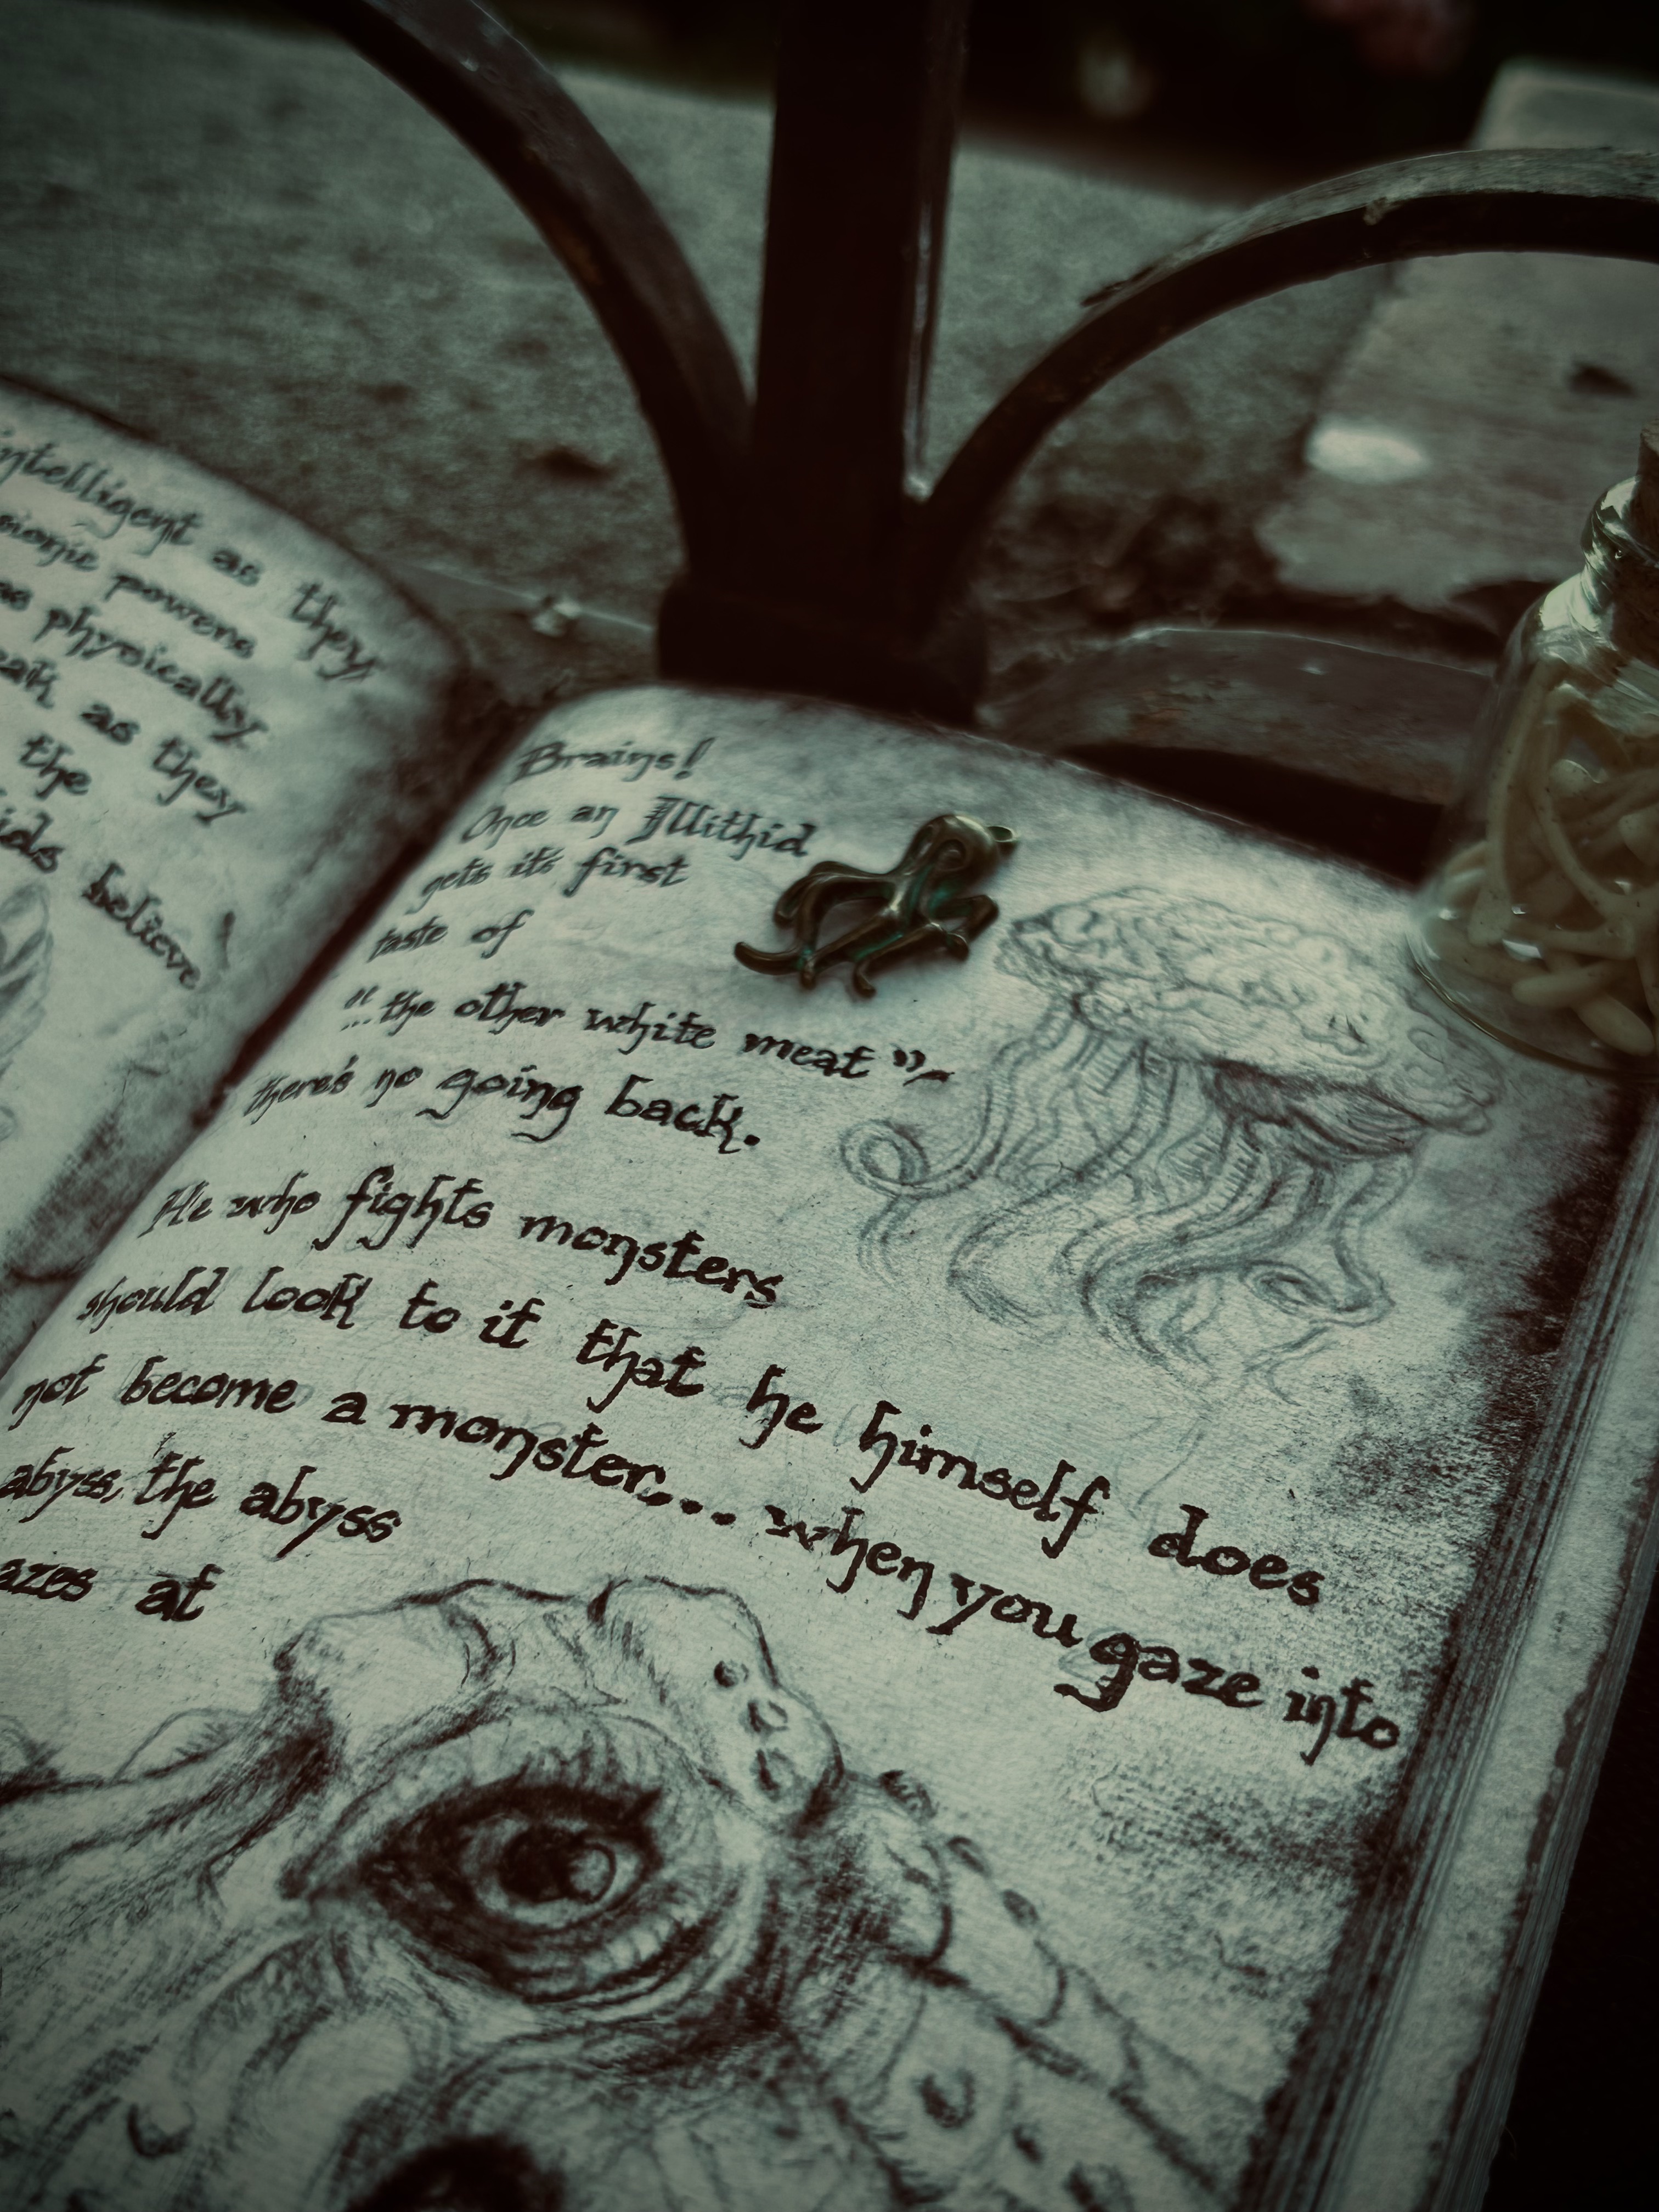 intelligent as they
powers
as physically
as they
the
believe
Brains!
Once an Illithid
gets its first
taste of
"...the other white meat"~
there's no going back.
He who fights monsters
should look to it that he himself does
not become a monster... when you gaze into
abyss, the abyss
azes at